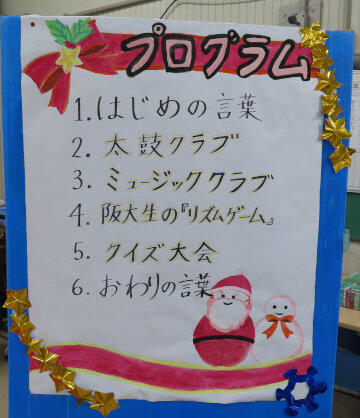 プログラム
1.はじめの言葉
2.太鼓クラブ
3.ミュージッククラブ
4.阪大生の『リズムゲーム』
5.クイズ大会
6.おわりの言葉